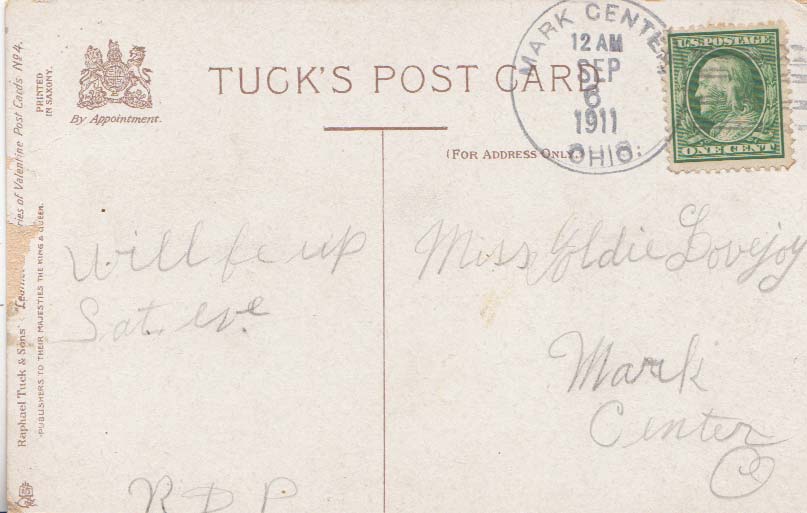 TUCK'S POST CARD
By Appointment.
(FOR ADDRESS ONLY.)
PRINTED
IN SAXONY.
Raphael Tuck & Sons' "Leather ries of Valentine Post Cards No 4.
PUBLISHERS TO THEIR MAJESTIES THE KING & QUEEN.
MARK CENTER
12 AM
SEP
6
1911
OHIO.
U.S. POSTAGE
ONE CENT
Will be up
Sat. eve
R D P
Miss Goldie Lovejoy
Mark
Center
O